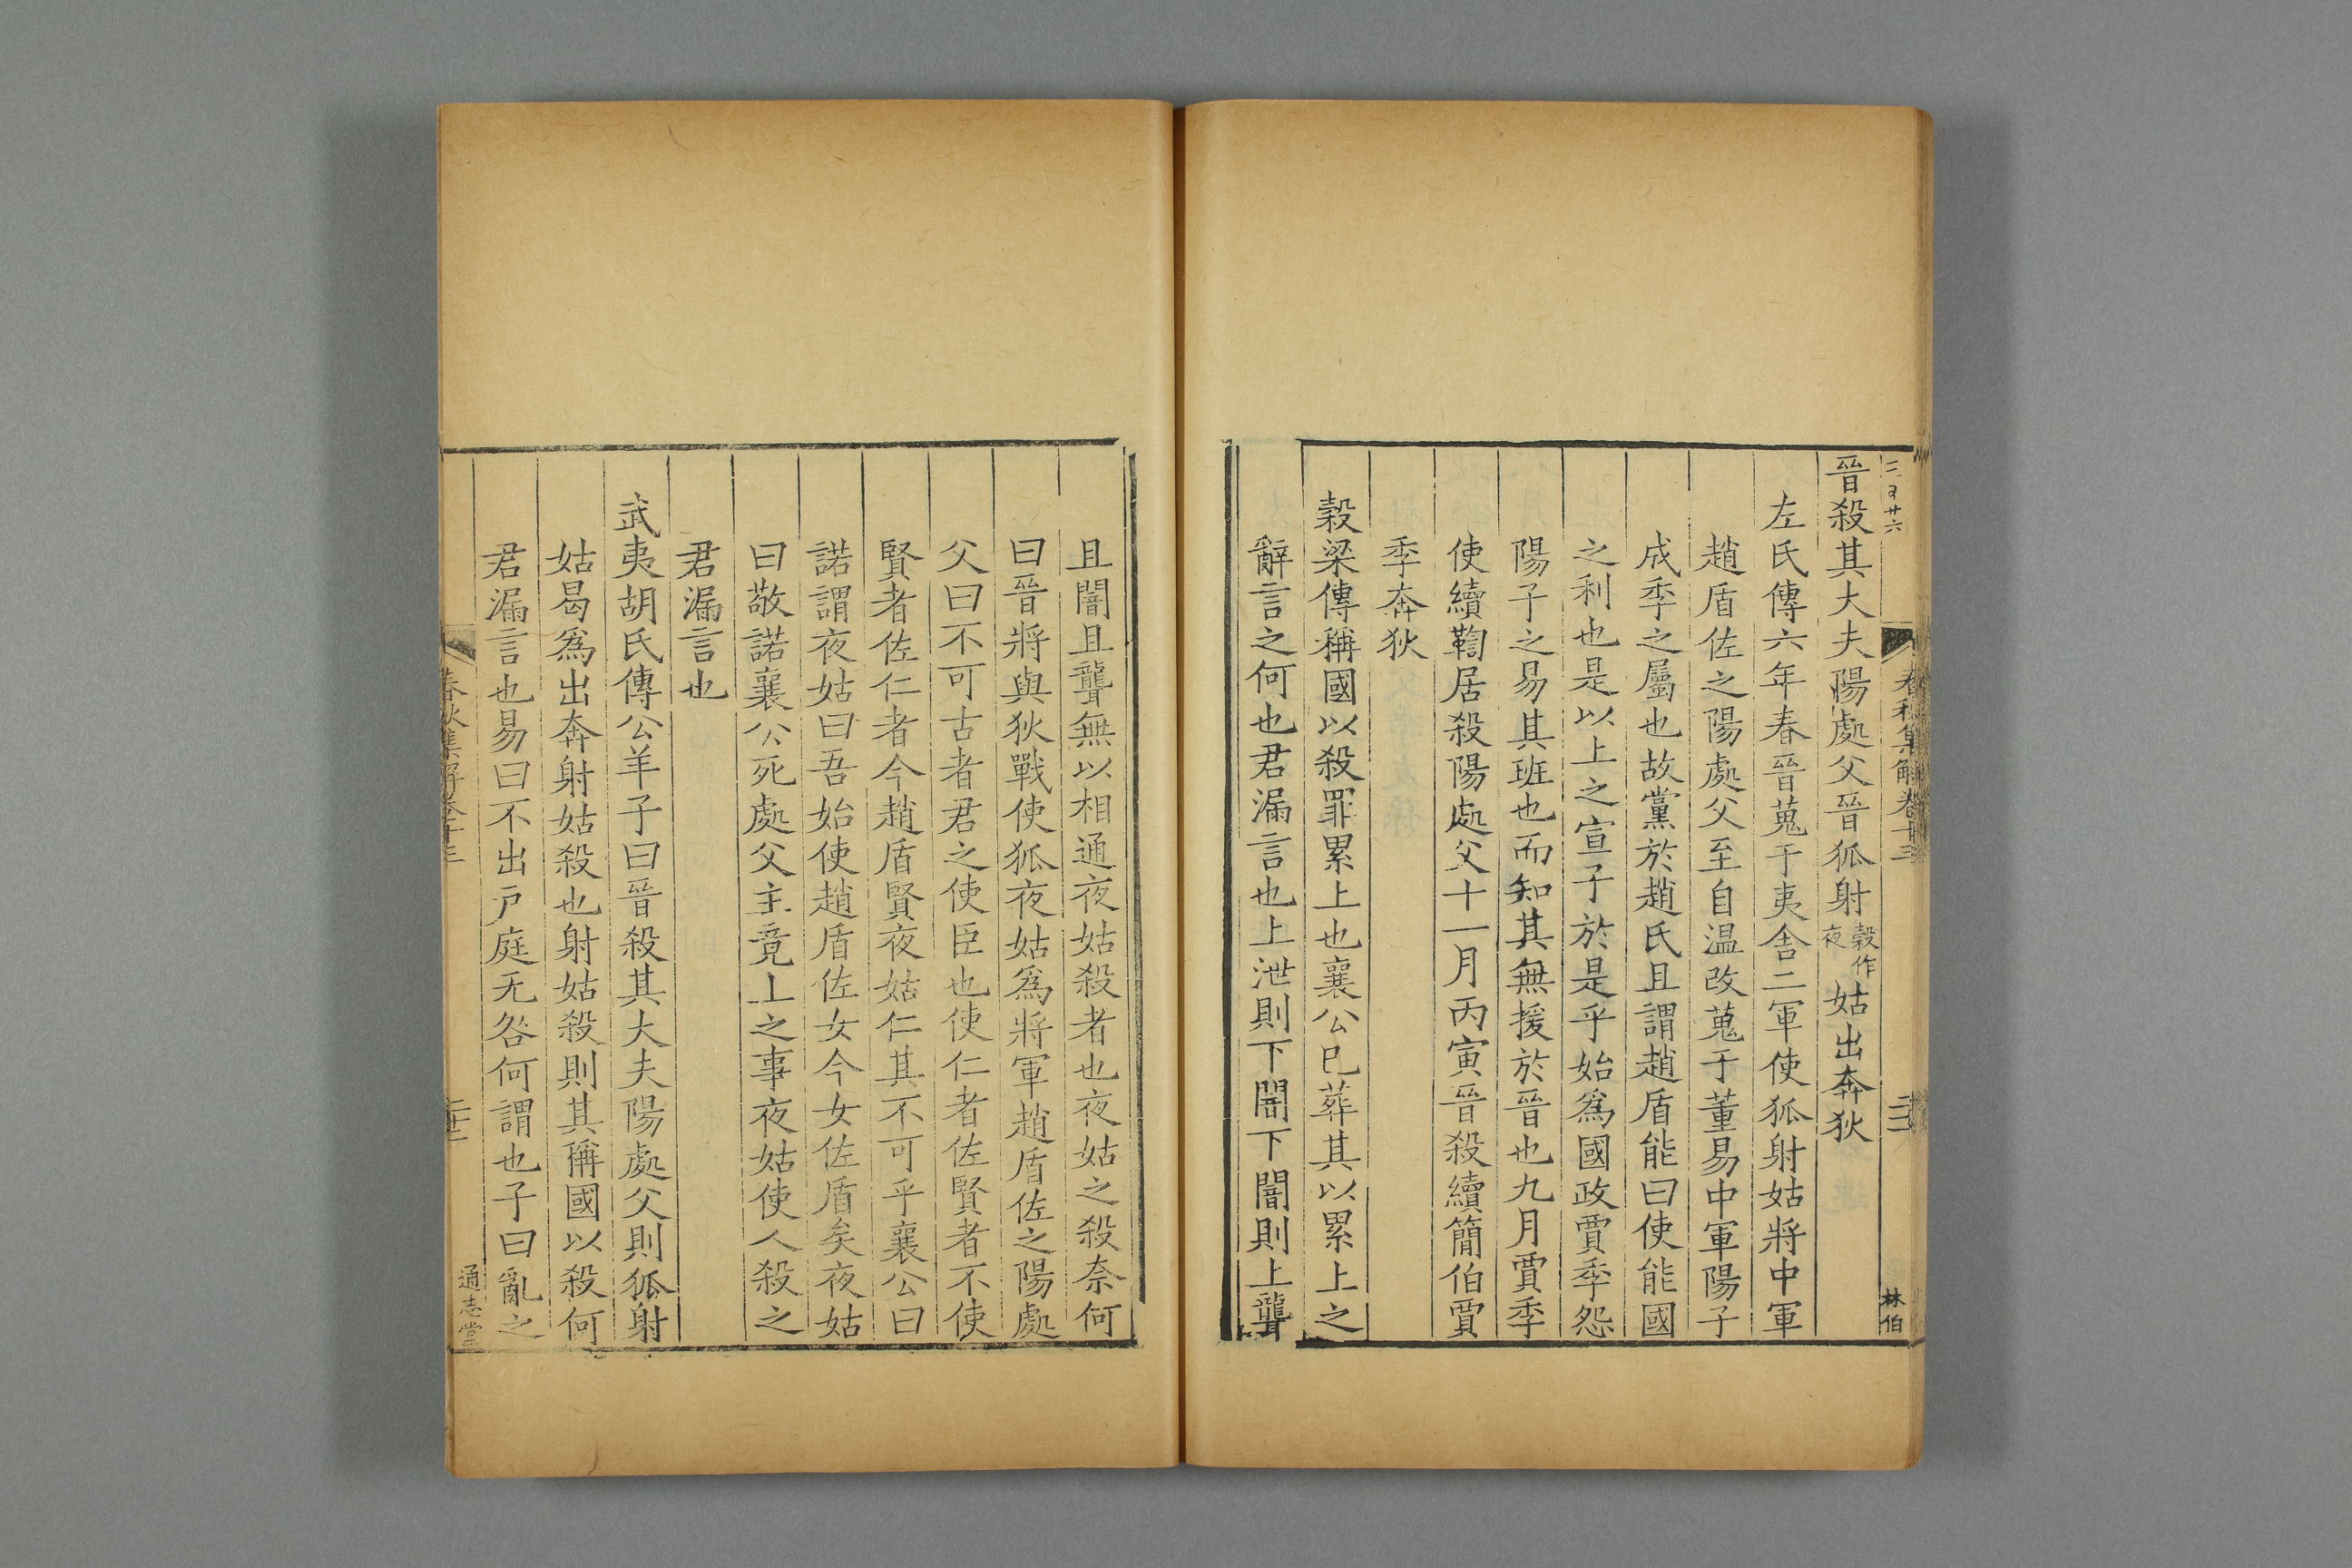 晉殺其大夫陽處父晉狐射穀作夜姑出奔狄
左氏傳六年春晉蒐于夷舍二軍使狐射姑將中軍
趙盾佐之陽處父至自温改蒐于董易中軍陽子
成季之屬也故黨於趙氏且謂趙盾能曰使能國
之利也是以上之宣子於是乎始爲國政賈季怨
陽子之易其班也而知其無援於晉也九月賈季
使續鞫居殺陽處父十一月丙寅晉殺續簡伯賈
季奔狄
穀梁傳稱國以殺罪累上也襄公已葬其以累上之
辭言之何也君漏言也上泄則下闇下闇則上聾
且闇且聾無以相通夜姑殺者也夜姑之殺奈何
曰晉將與狄戰使狐夜姑爲將軍趙盾佐之陽處
父曰不可古者君之使臣也使仁者佐賢者不使
賢者佐仁者今趙盾賢夜姑仁其不可乎襄公曰
諾謂夜姑曰吾始使趙盾佐女今女佐盾矣夜姑
曰敬諾襄公死處父主竟上之事夜姑使人殺之
君漏言也
武夷胡氏傳公羊子曰晉殺其大夫陽處父則狐射
姑曷爲出奔射姑殺也射姑殺則其稱國以殺何
君漏言也易曰不出戶庭无咎何謂也子曰亂之
春秋集解卷十三
林伯
春秋集解卷十三
通志堂